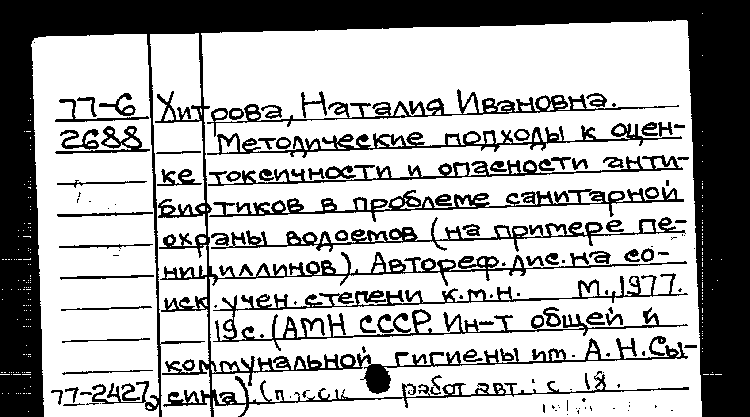 77-6 Хитрова, Наталия Ивановна.
2688 Методические подходы к оцен-
ке токсичности и опасности анти-
биотиков в проблеме санитарной
охраны водоемов (на примере пе-
нициллинов). Автореф. дис. на со-
иск. учен. степени к.м.н. М., 1977.
19с. (АМН СССР. Ин-т общей и
коммунальной гигиены им. А.Н.Сы-
77-2427 сина). работ авт.: с. 18.